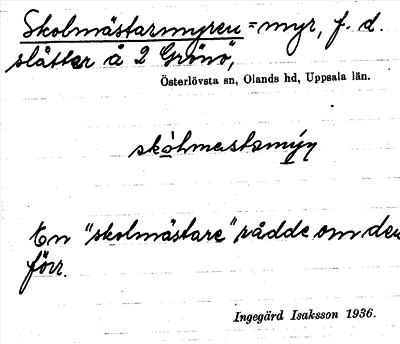 Skolmästarmyren = myr, f. d.
slåtter å 2 Grönö,
Österlövsta sn, Olands hd, Uppsala län.
En "skolmästare" rådde om den
förr.
Ingegärd Isaksson 1936.